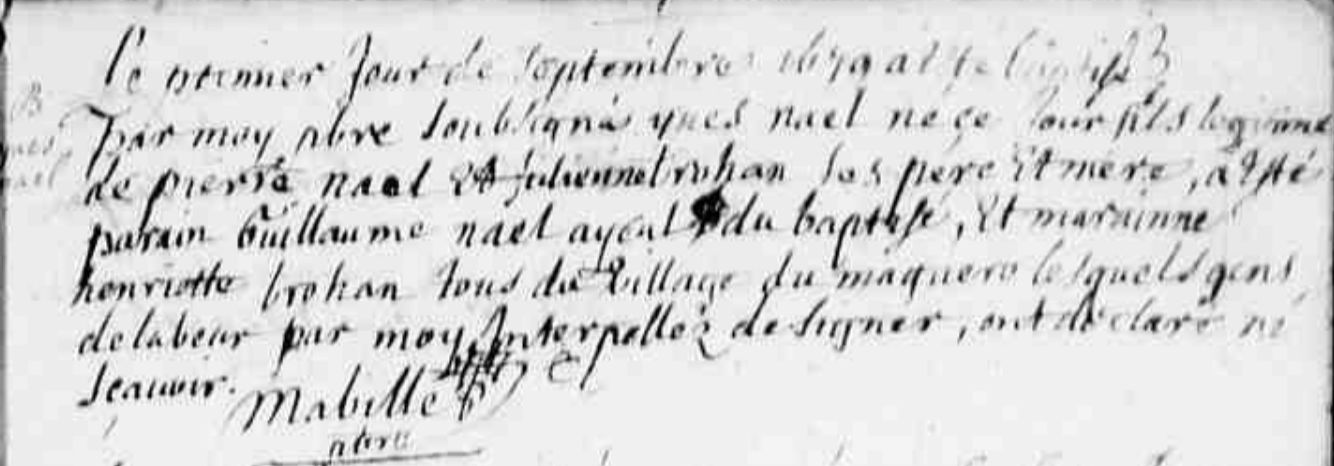 le premier Jour de Septembre 1679 a esté baptisé
par moy pbre soubsigné yves nael né ce Jour fils legitime
de pierre nael Et Julienne brohan ses pere Et mere, a Esté
parain Guillaume nael ayeul du baptisé, Et marainne
henriette brohan tous du Village du maquero lesquels gens
de labeur par moy Interpellez de signer, ont declaré ne
scauoir.
Mabille
pbre